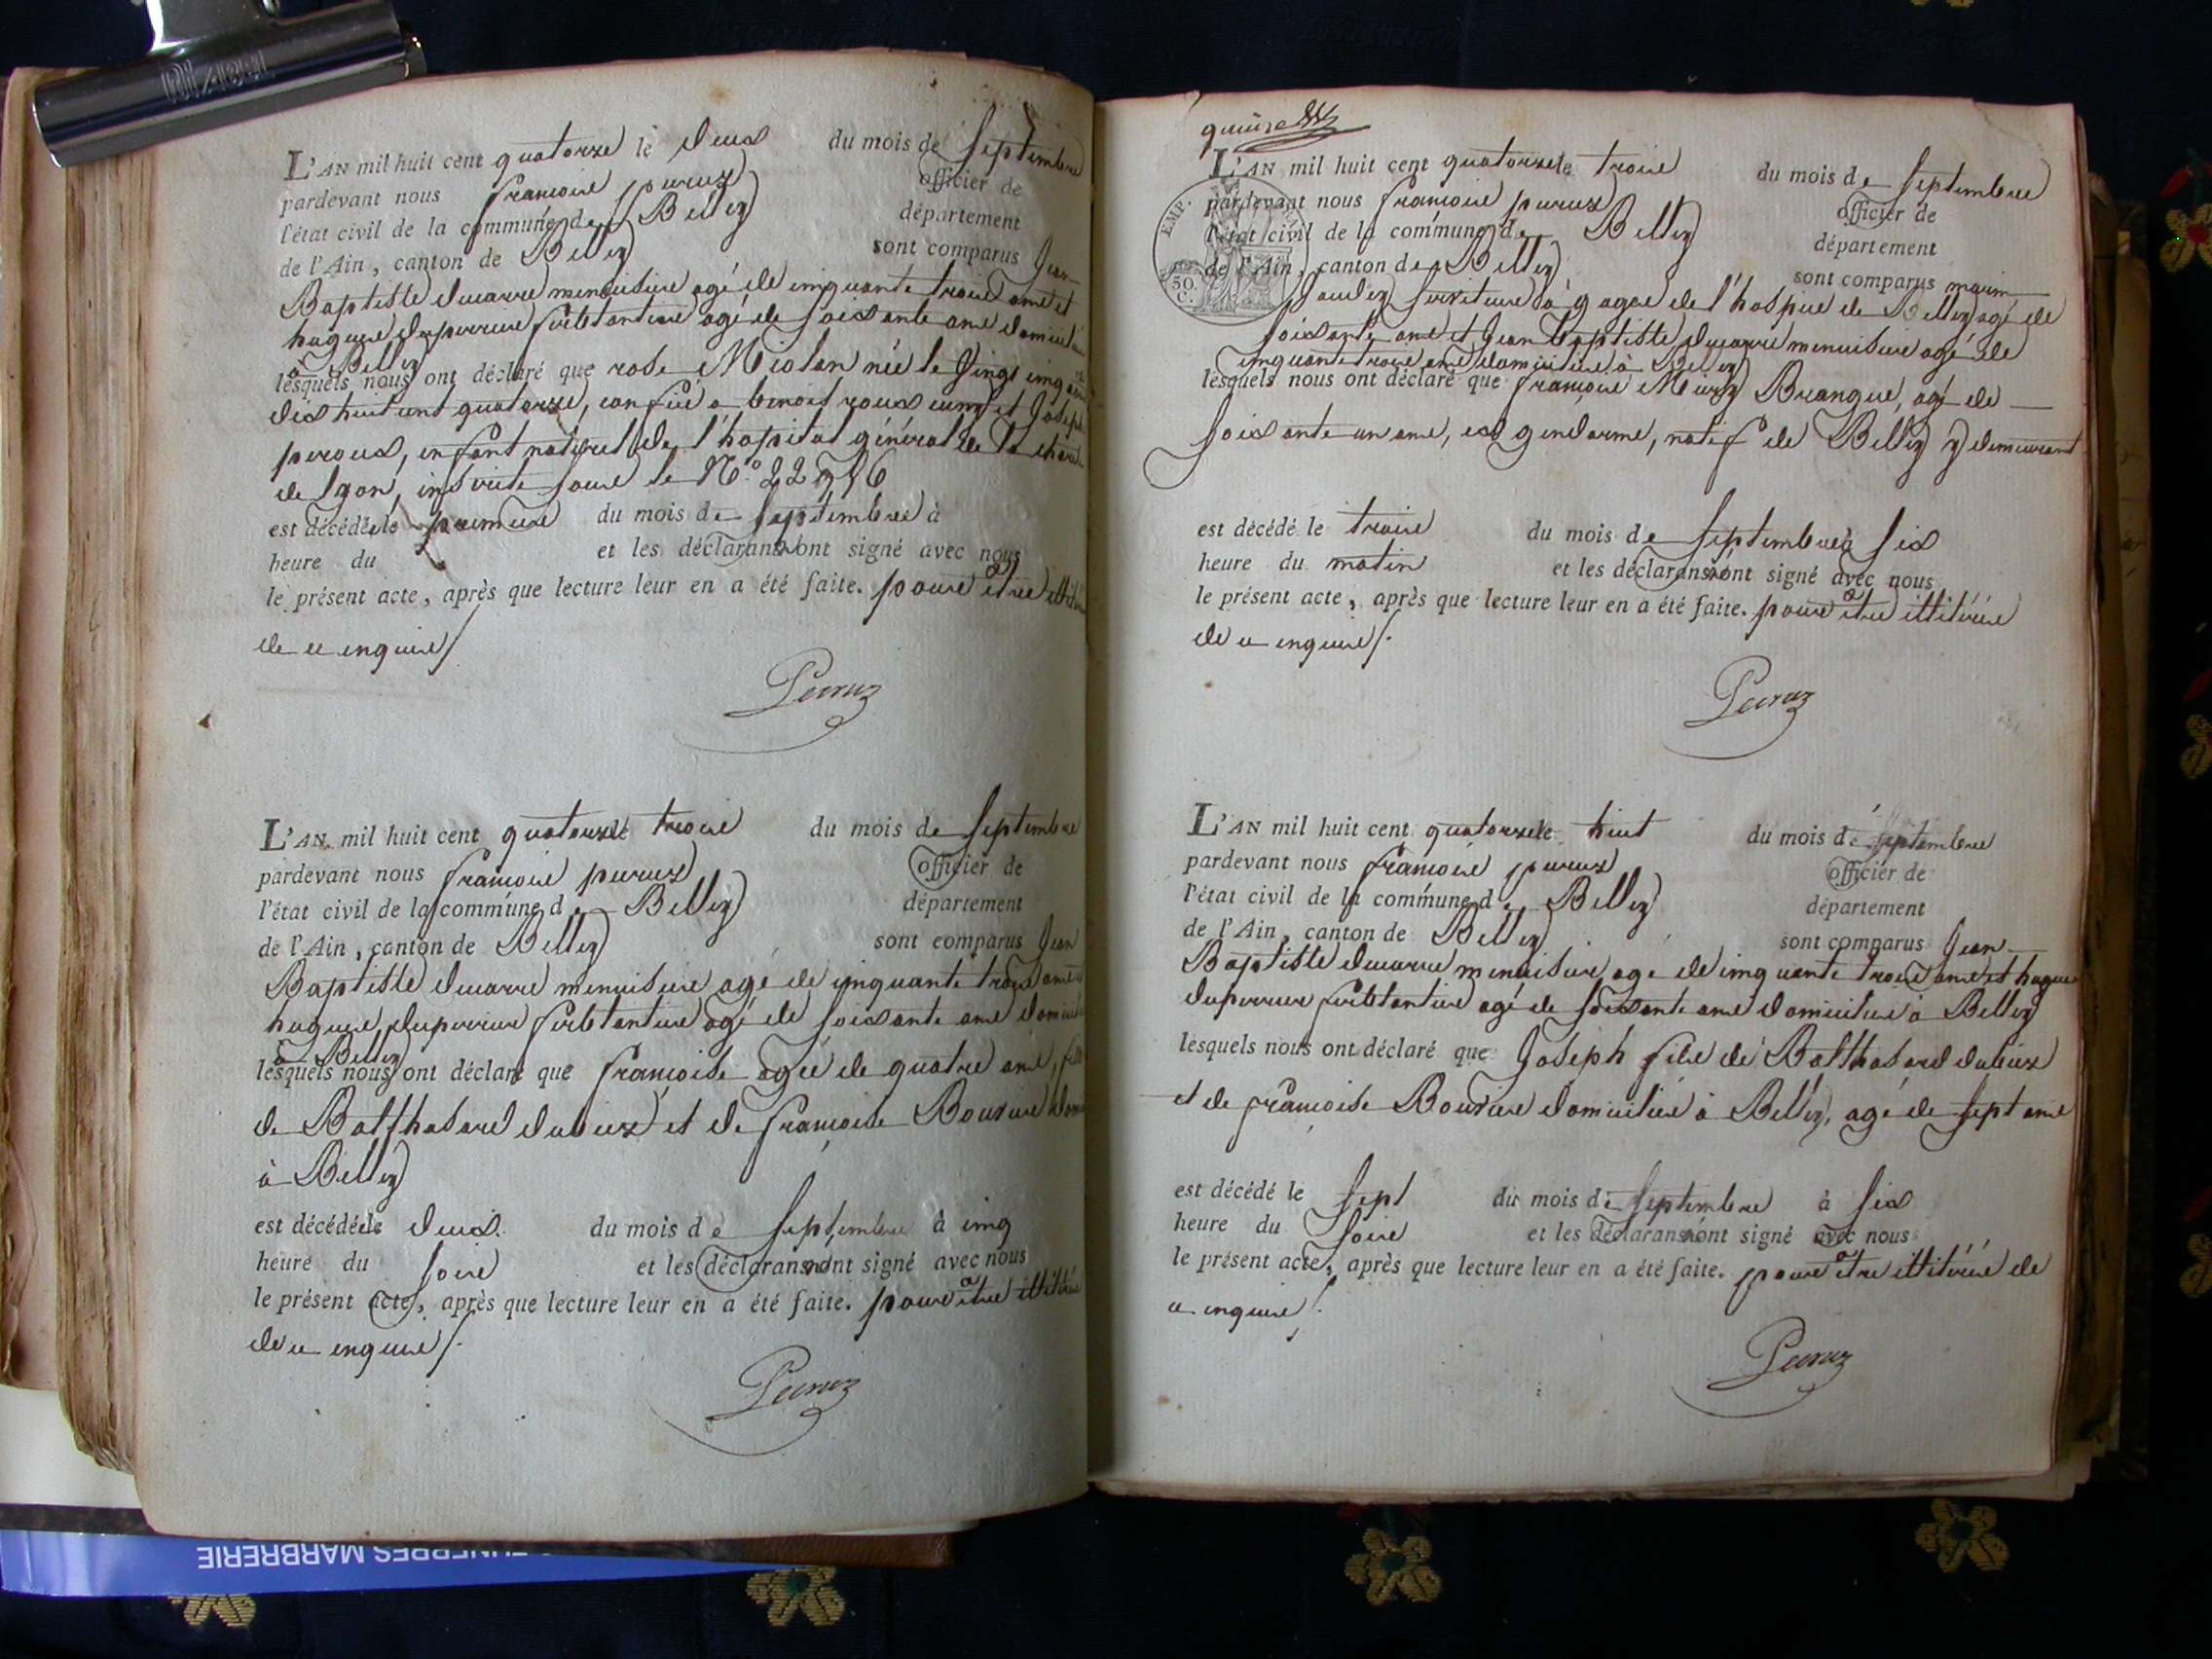 DIABOL
L'AN mil huit cent quatorze le deux du mois de septembre
pardevant nous françois peruz officier de
l'état civil de la commune de Belley département
de l'Ain, canton de Belley sont comparus Jean
Baptiste ducarre menuisier agé de cinquante trois ans et
hugues duperrier agé de soixante ans domiciliés
à Belley
lesquels nous ont déclaré que rose Miolan née le vingt cinq
dix huit cent quatorze, confiée a benoit roux et Joseph
peroux, enfant naturel de l'hopital général de la charité
de lyon, inscrite sous le N.o
est décédée le premier du mois de septembre à
heure du et les déclarans ont signé avec nous
le présent acte, après que lecture leur en a été faite. pour être
de ce enquis /.
Perruz
L'AN mil huit cent quatorze le trois du mois de septembre
pardevant nous françois peruz officier de
l'état civil de la commune de Belley département
de l'Ain, canton de Belley sont comparus Jean
Baptiste ducarre menuisier agé de cinquante trois ans
hugues duperrier agé de soixante ans domiciliés
à Belley
lesquels nous ont déclaré que françoise agée de quatre ans, fille
de Balthasard dubiez et de françoise Bouvier
à Belley
est décédée le deux du mois de septembre à cinq
heure du soire et les déclarans ont signé avec nous
le présent acte, après que lecture leur en a été faite. pour être
de ce enquis /.
Perruz
EUNEBRES MARBRERIE
quinze
L'AN mil huit cent quatorze le trois du mois de septembre
pardevant nous françois peruz officier de
l'état civil de la commune de Belley département
de l'Ain, canton de Belley sont comparus
EMP.
50. C.
à gages de l'hospice de Belley agé de
soixante ans et Jean Baptiste ducarre menuisier agé de
cinquante trois ans domiciliés à Belley
lesquels nous ont déclaré que françois Brangue, agé de
soixante un ans, ex gendarme, natif de Belley y demeurant
est décédé le trois du mois de septembre à six
heure du matin et les déclarans ont signé avec nous
le présent acte, après que lecture leur en a été faite. pour être
de ce enquis /.
Perruz
L'AN mil huit cent quatorze le huit du mois de septembre
pardevant nous françois peruz officier de
l'état civil de la commune de Belley département
de l'Ain, canton de Belley sont comparus Jean
Baptiste ducarre menuisier agé de cinquante trois ans et hugues
duperrier agé de soixante ans domiciliés à Belley
lesquels nous ont déclaré que Joseph fils de Balthasard dubiez
et de françoise Bouvier domiciliés à Belley, agé de sept ans
est décédé le sept du mois de septembre à six
heure du soire et les déclarans ont signé avec nous
le présent acte, après que lecture leur en a été faite. pour être de
ce enquis /.
Perruz